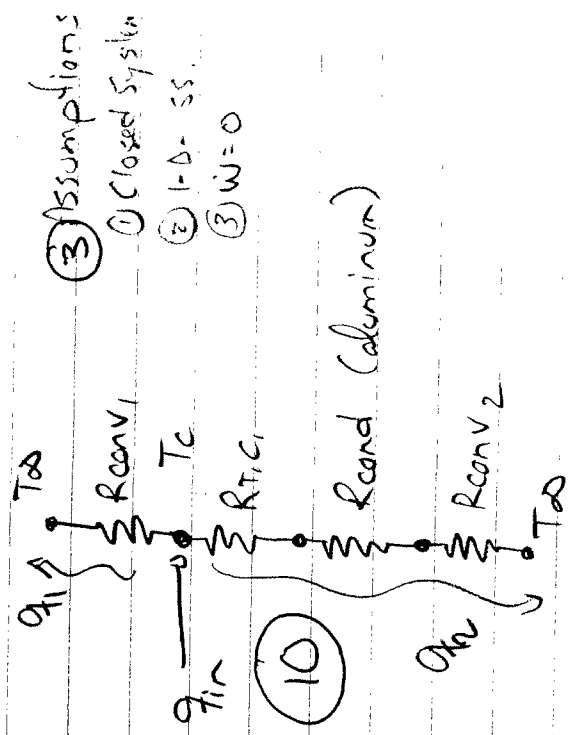 ③ Assumptions
① Closed System
② 1-D- SS.
③ Ẇ=0
T∞
Rconv1
q1
Tc
qin
RT,C,
⑩
Rcond (aluminum)
q2
Rconv2
T∞